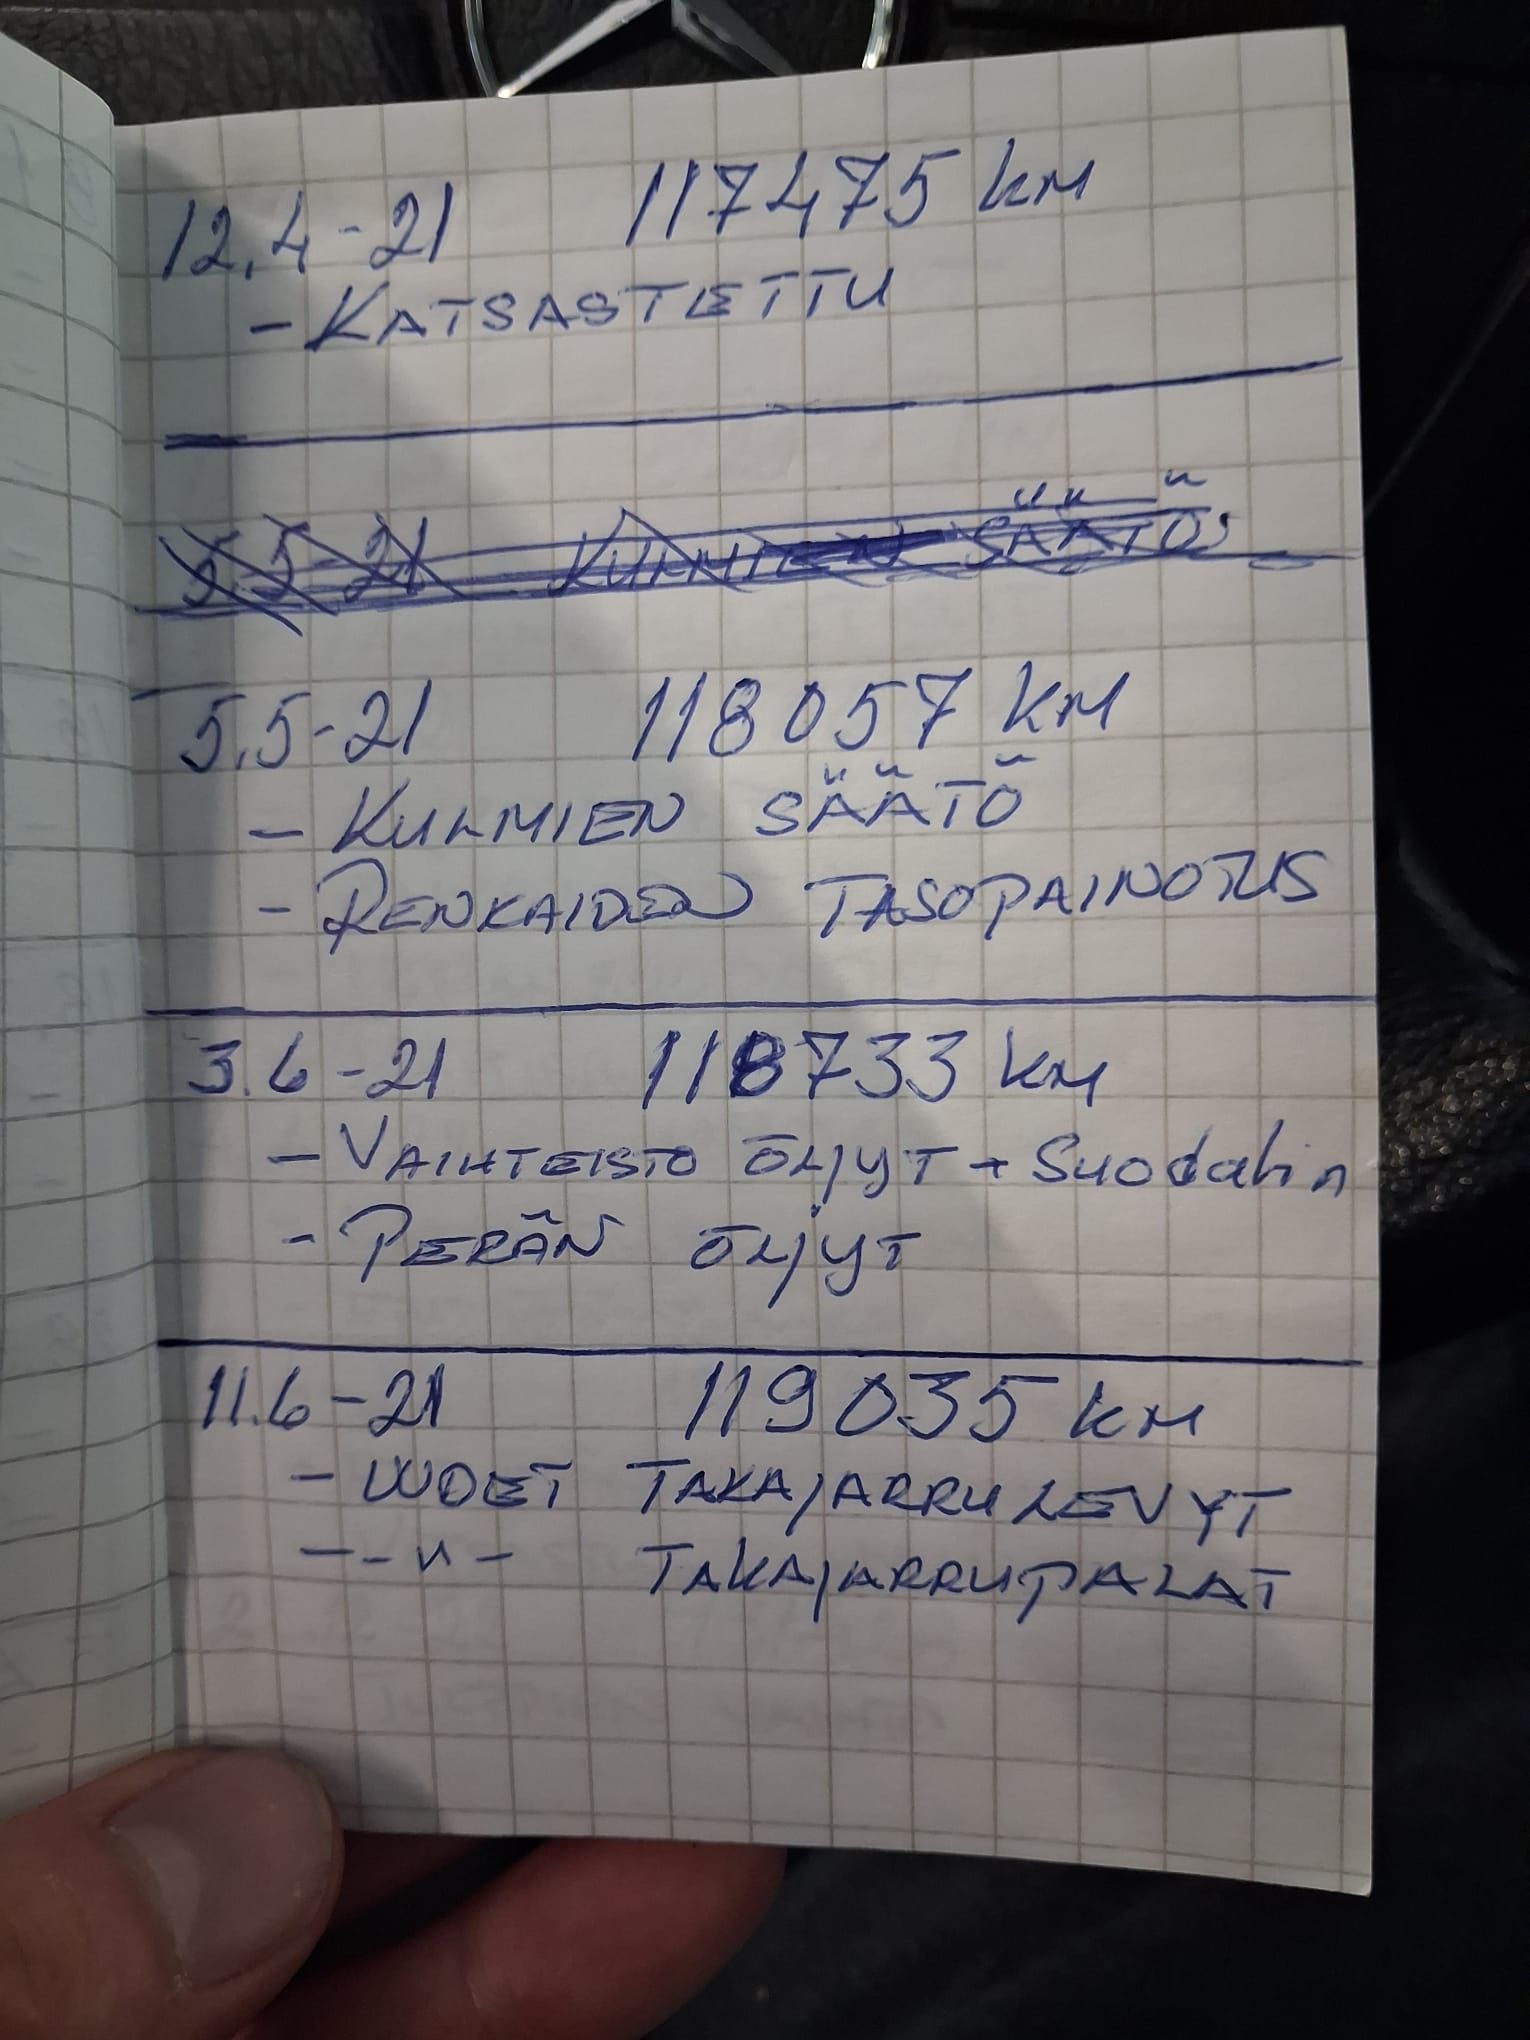 12.4-21 117475 km
- KATSASTETTU
5.5-21 KULMIEN SÄÄTÖ
5.5-21 118057 KM
- KULMIEN SÄÄTÖ
- RENKAIDEN TASOPAINOTUS
3.6-21 118733 KM
- VAIHTEISTO ÖLJYT + Suodatin
- PERÄN ÖLJYT
11.6-21 119035 KM
- UUDET TAKAJARRULEVYT
- -"- TAKAJARRUPALAT